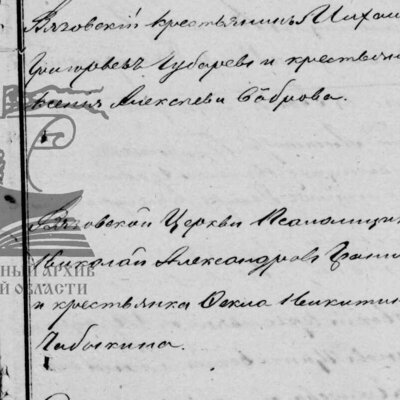 Вязовскій крестьянинъ Михаи
Григорьевъ Губаревъ и крестьян
Ксенія Алексѣева Боброва.
Вязовской Церкви Псаломщик
Николай Александровъ
и крестьянка Ѳекла Никитин
Чабыкина.
НЫЙ АРХИВ
Й ОБЛАСТИ